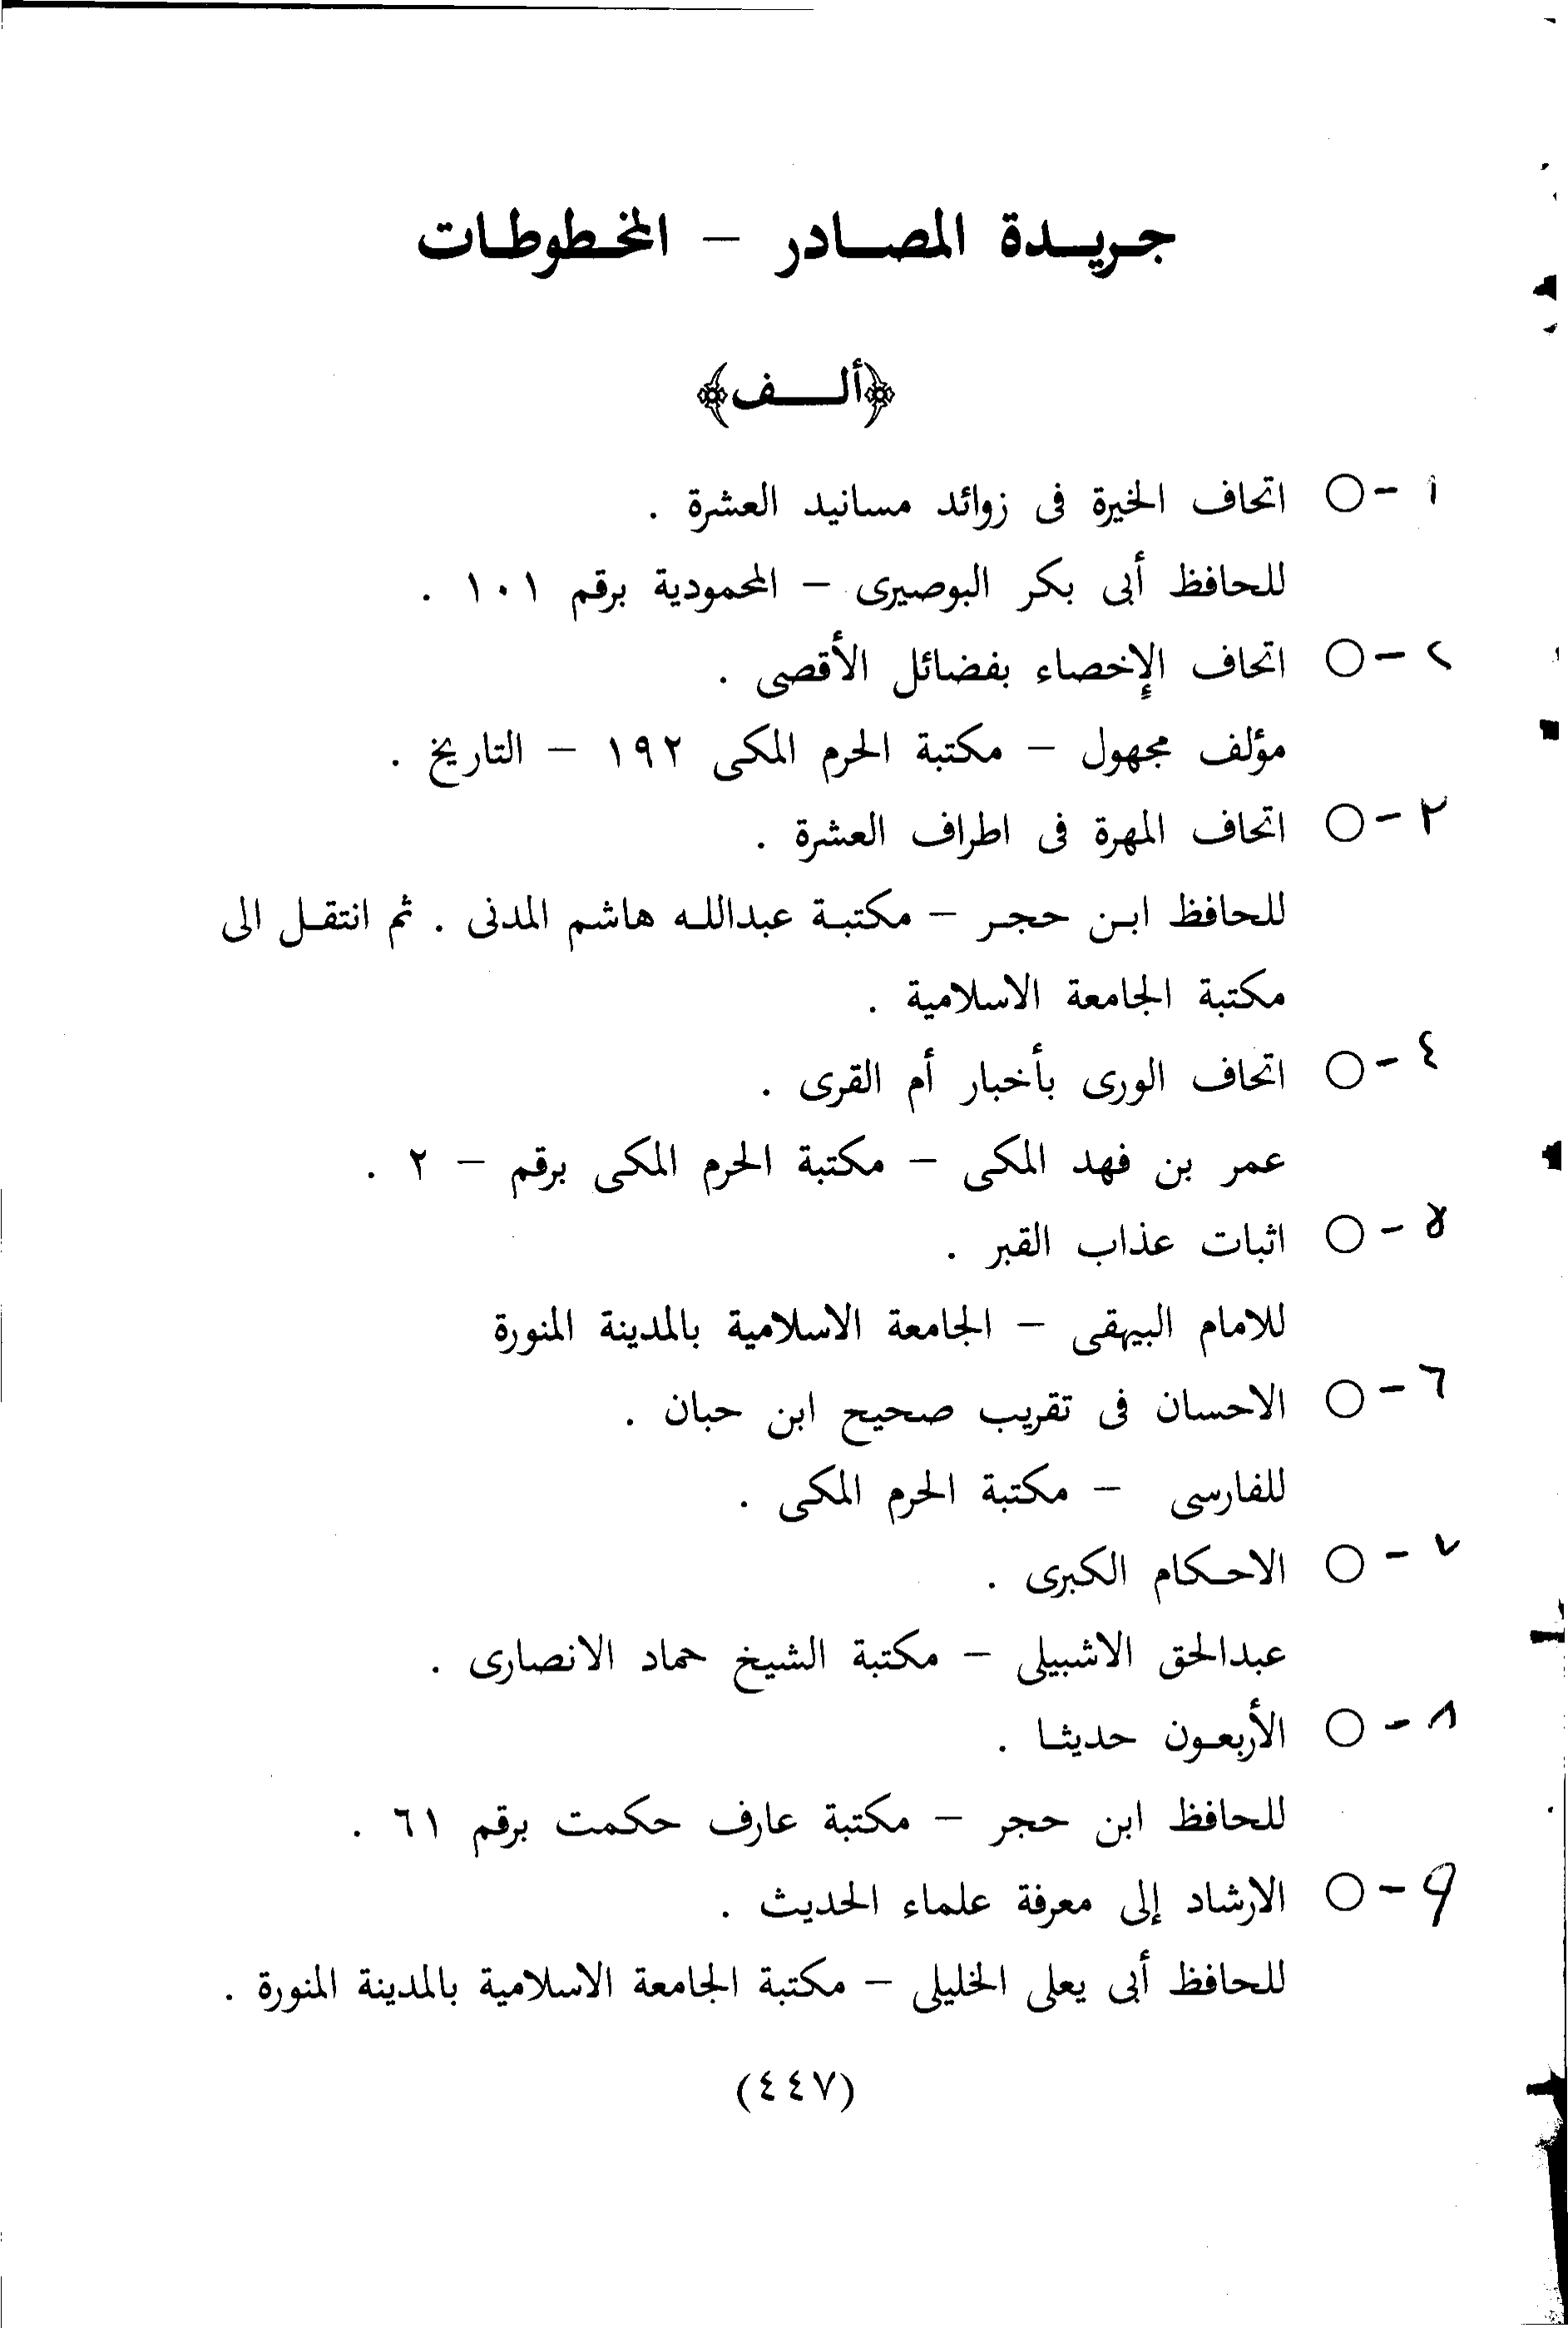 جريدة المصادر – المخطوطات
﴿ألف﴾
١ - ○ اتحاف الخيرة فى زوائد مسانيد العشرة .
للحافظ أبى بكر البوصيرى – المحمودية برقم ١٠١ .
٢ - ○ اتحاف الإخصاء بفضائل الأقصى .
مؤلف مجهول – مكتبة الحرم المكى ١٩٢ – التاريخ .
٣ - ○ اتحاف المهرة فى اطراف العشرة .
للحافظ ابن حجر – مكتبة عبدالله هاشم المدنى . ثم انتقل الى
مكتبة الجامعة الاسلامية .
٤ - ○ اتحاف الورى بأخبار أم القرى .
عمر بن فهد المكى – مكتبة الحرم المكى برقم – ٢ .
٥ - ○ اثبات عذاب القبر .
للامام البيهقى – الجامعة الاسلامية بالمدينة المنورة
٦ - ○ الاحسان فى تقريب صحيح ابن حبان .
للفارسى – مكتبة الحرم المكى .
٧ - ○ الاحكام الكبرى .
عبدالحق الاشبيلى – مكتبة الشيخ حماد الانصارى .
٨ - ○ الأربعون حديثا .
للحافظ ابن حجر – مكتبة عارف حكمت برقم ٦١ .
٩ - ○ الارشاد إلى معرفة علماء الحديث .
للحافظ أبى يعلى الخليلى – مكتبة الجامعة الاسلامية بالمدينة المنورة .
(٤٤٧)